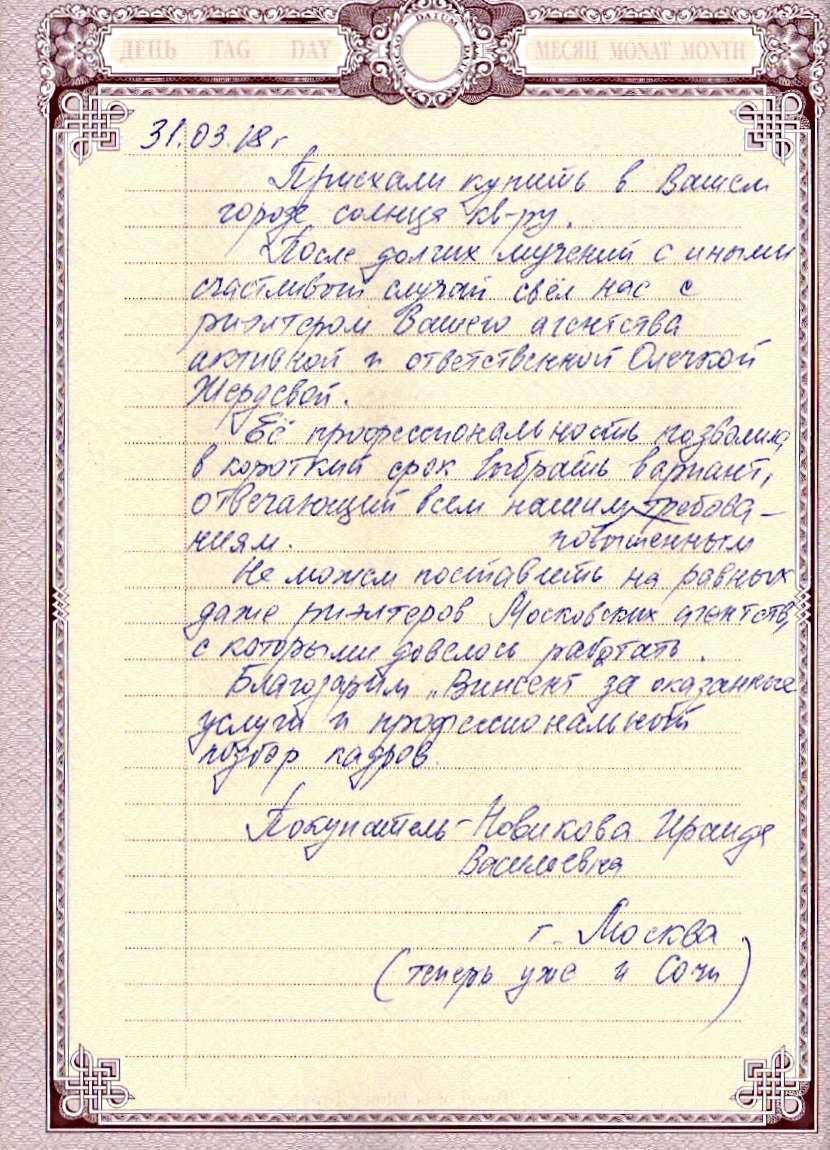 DATUM
ДЕНЬ TAG DAY
МЕСЯЦ MONAT MONTH
31.03.18г
Приехали купить в Вашем
городе солнца кв-ру.
После долгих мучений с иными
счастливый случай свёл нас с
риэлтером Вашего агентства
активной и ответственной Олечкой
Жердевой.
Её профессиональность позволила
в короткий срок выбрать вариант,
отвечающий всем нашим требова-
ниям. повышенным
Не можем поставить на равных
даже риэлтеров Московских агентств,
с которыми довелось работать.
Благодарим „Винсент за оказанные
услуги и профессиональный
подбор кадров.
Покупатель - Новикова Ираида
Васильевна
г. Москва
(теперь уже и Сочи)